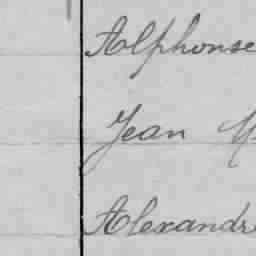 Alphonse
Jean
Alexandre